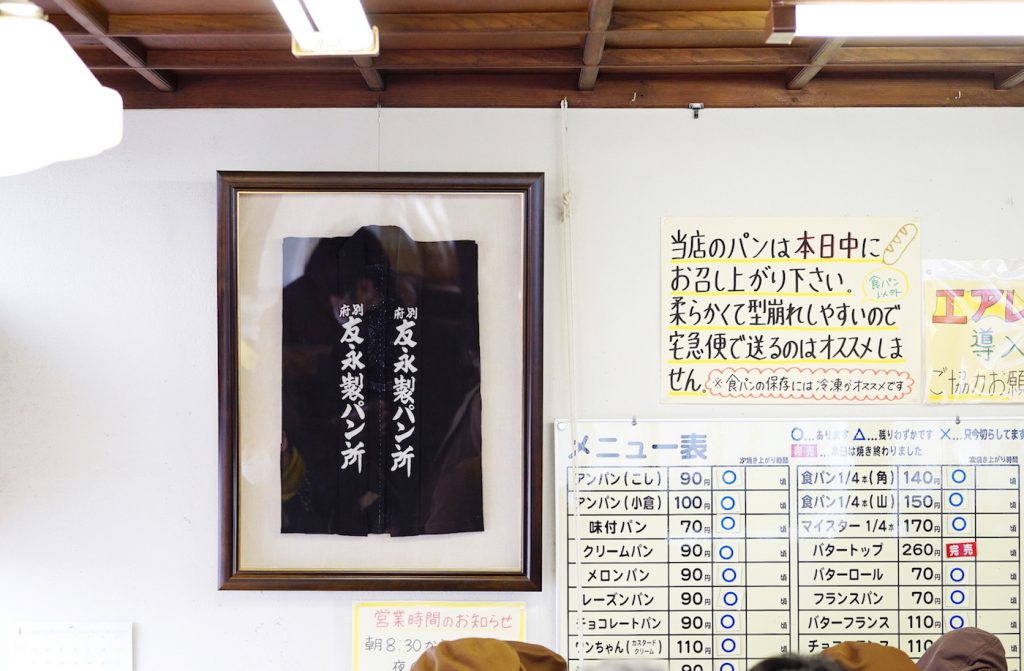 別府
友永製パン所
別府
友永製パン所
当店のパンは本日中に
お召し上がり下さい。
食パン
以外
柔らかくて型崩れしやすいので
宅急便で送るのはオススメしま
せん。
※食パンの保存には冷凍がオススメです
エアレ
導入
ご協力お願
メニュー表
〇…あります △…残りわずかです ✕…只今切らしてます
完売…本日は焼き終わりました
次焼き上がり時間
次焼き上がり時間
アンパン(こし) 90円 〇 頃
食パン1/4本(角) 140円 〇 頃
アンパン(小倉) 100円 〇 頃
食パン1/4本(山) 150円 〇 頃
味付パン 70円 〇 頃
マイスター1/4本 170円 〇 頃
クリームパン 90円 〇 頃
バタートップ 260円 完売 頃
メロンパン 90円 〇 頃
バターロール 70円 〇 頃
レーズンパン 90円 〇 頃
フランスパン 70円 〇 頃
チョコレートパン 90円 〇 頃
バターフランス 110円 〇 頃
ワンちゃん(カスタードクリーム) 110円 〇 頃
110円 〇
90円
営業時間のお知らせ
朝8:30か
夜